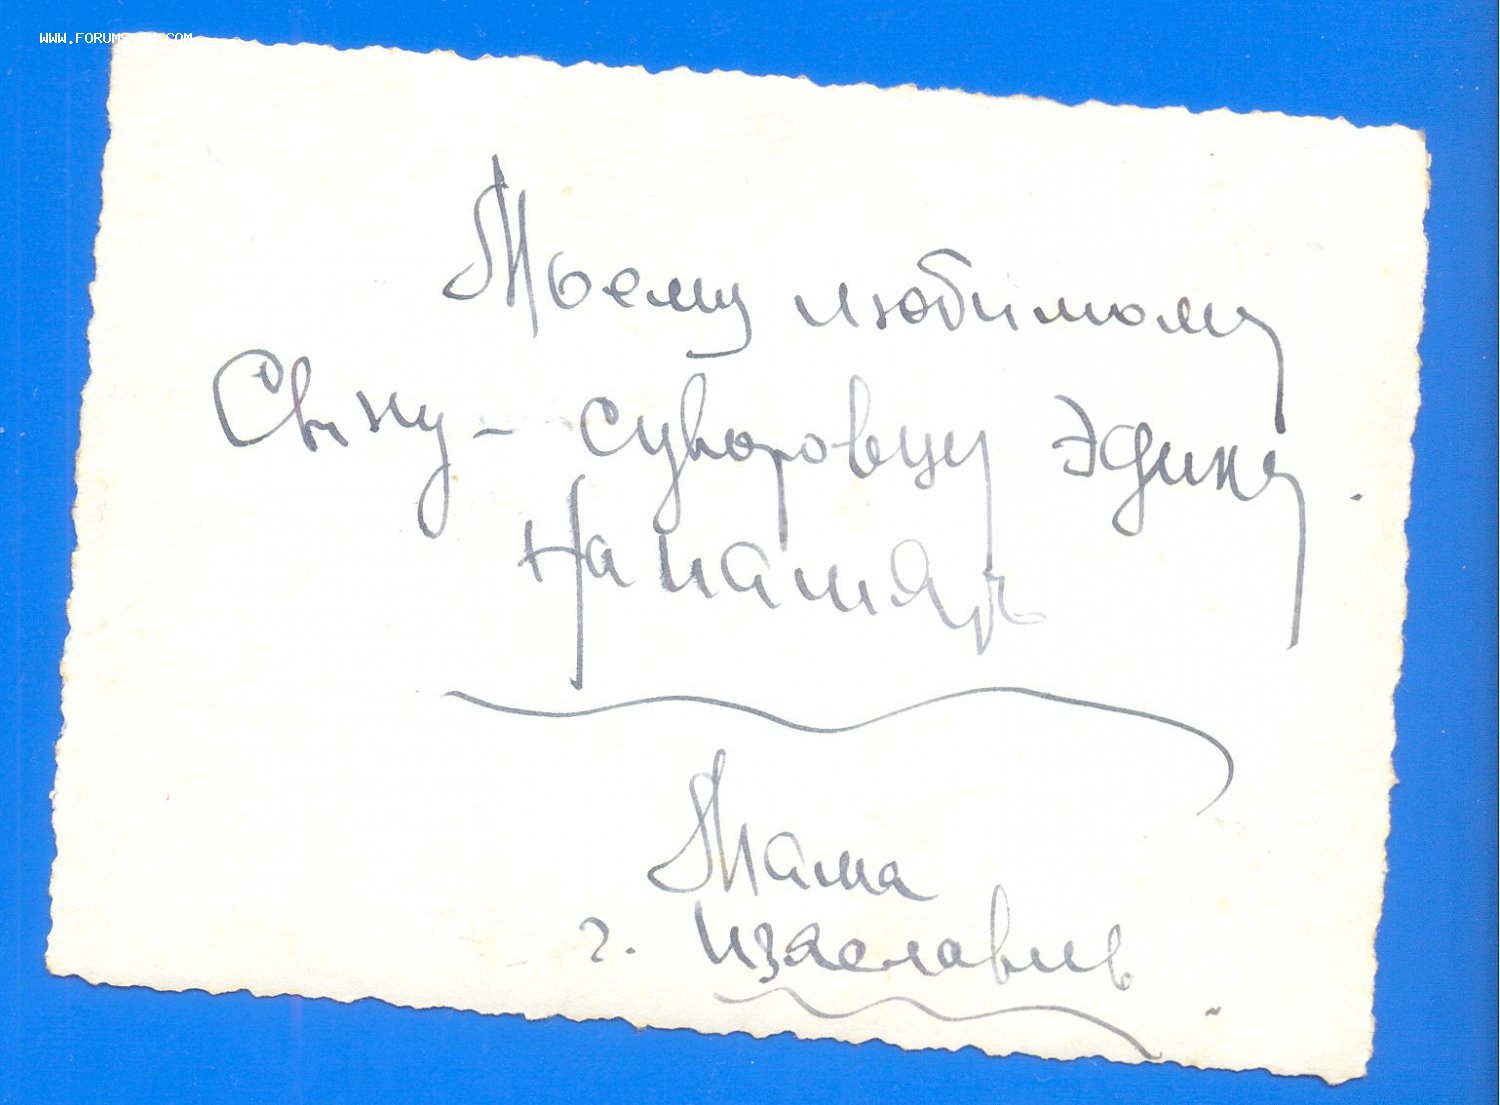 WWW.FORUMS COM
Моему любимому
Сыну - суворовцу Эдику.
На память
Мама
г. Изяславль